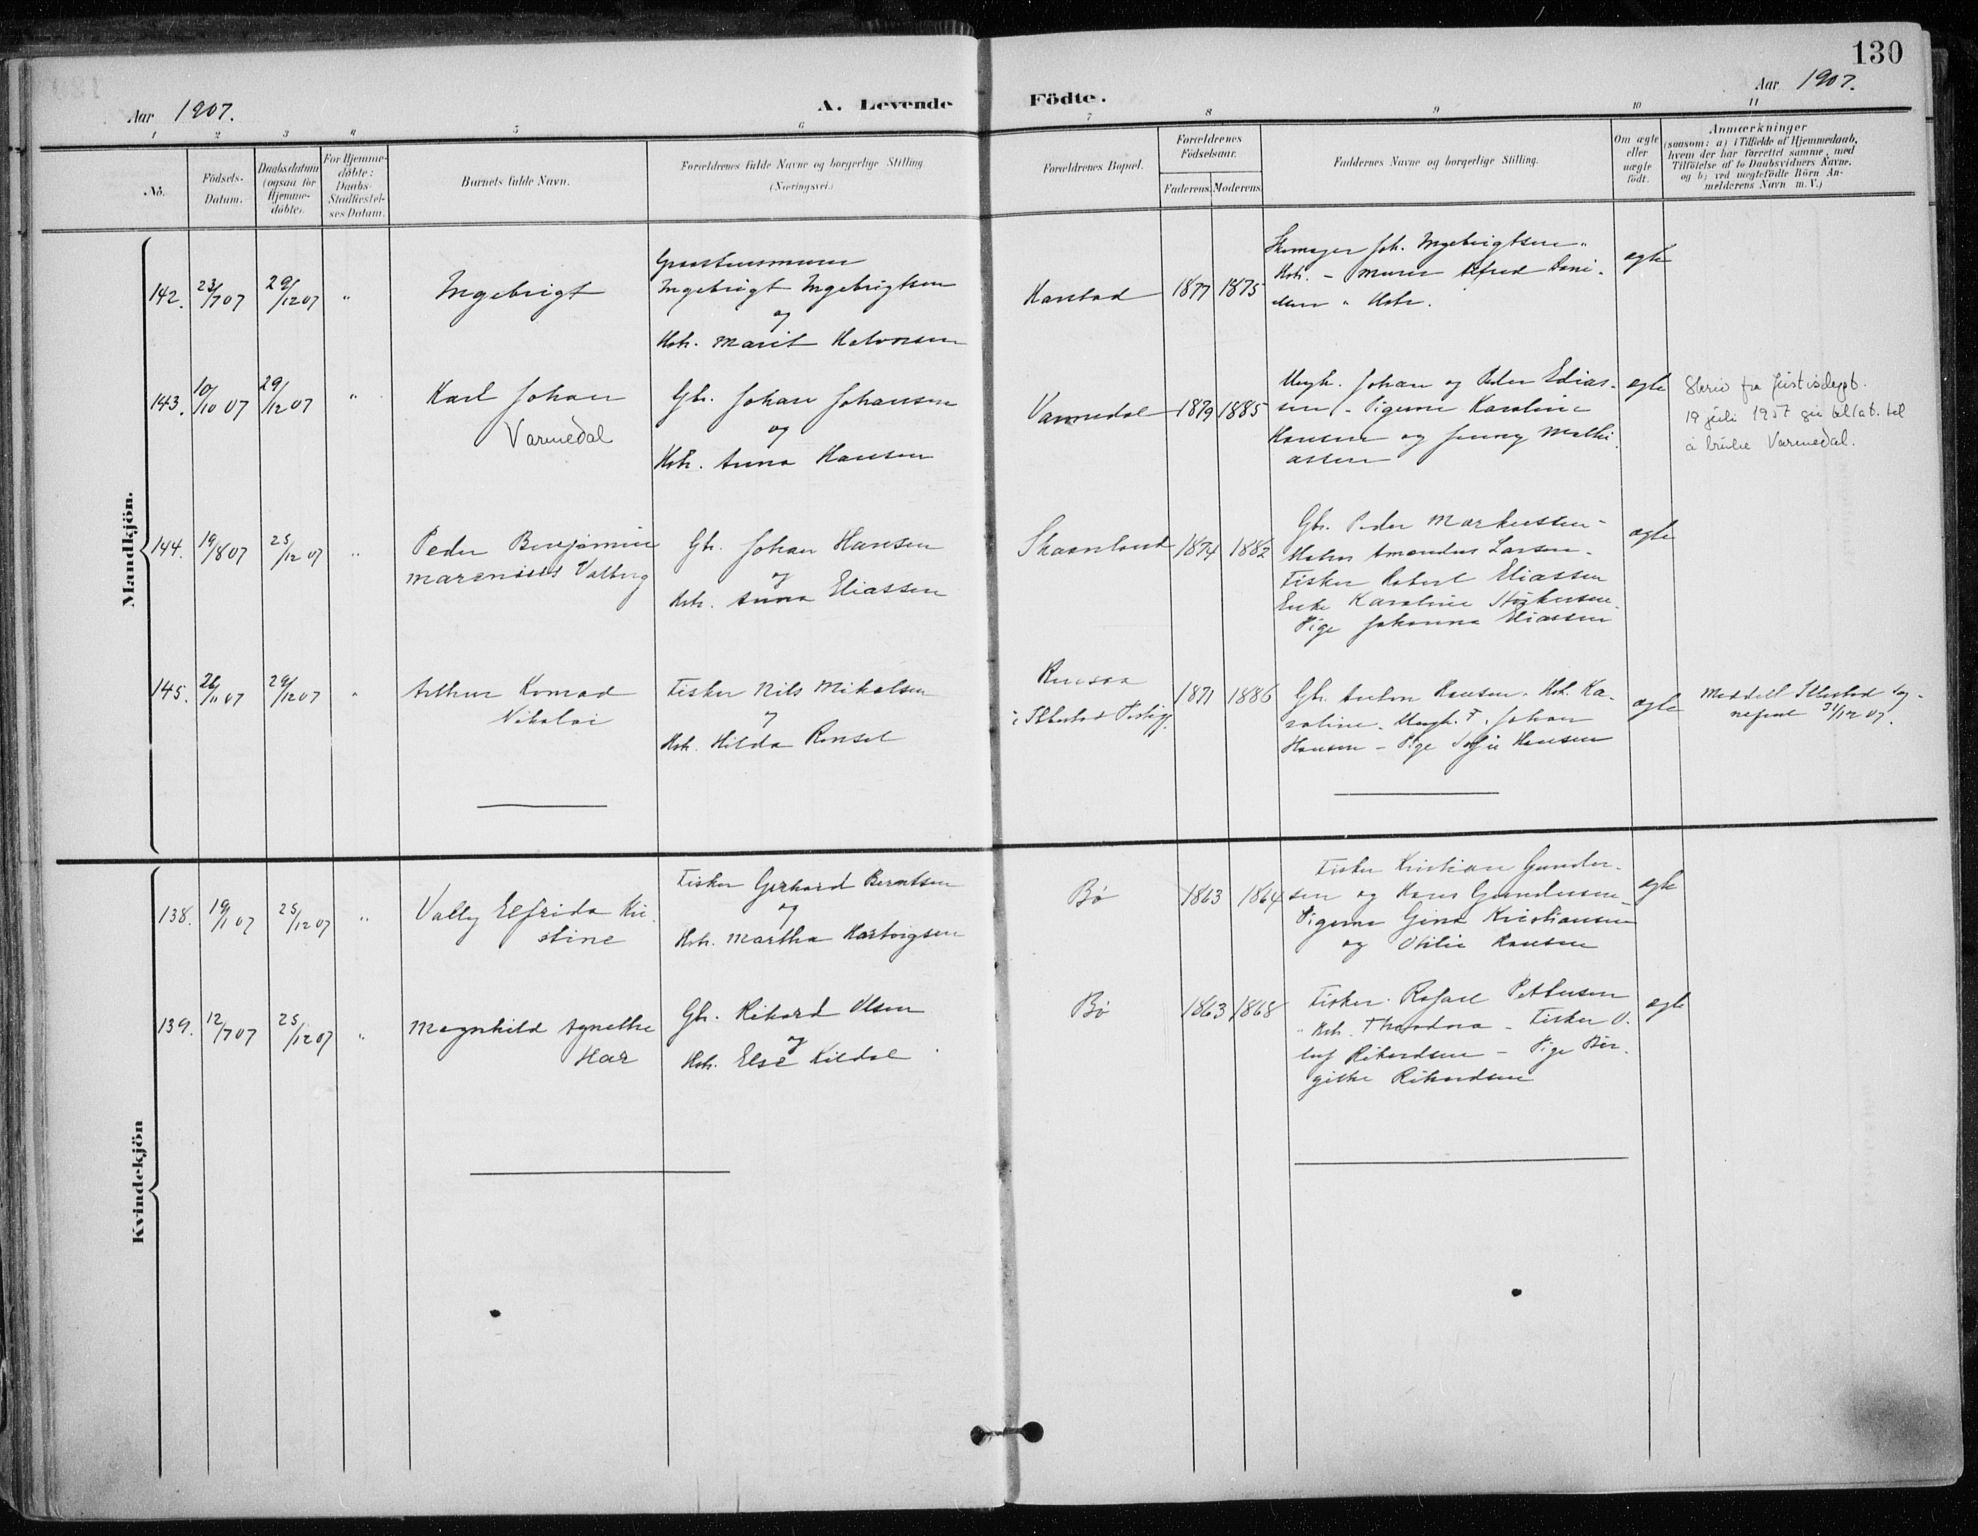 130
Aar 1907.
A. Levende Födte.
Aar 1907.
1 2 3 4 5 6 7 8 9 10 11
No.
Födsels-
Datum.
Daabsdatum
(ogsaa for
Hjemme-
döbte).
For Hjemme-
döbte:
Daabs-
Stadfæstel-
ses Datum.
Barnets fulde Navn.
Forældrenes fulde Navne og borgerlige Stilling
(Næringsvei.)
Forældrenes Bopæl.
Forældrenes
Födselsaar.
Faderens. Moderens.
Faddernes Navne og borgerlige Stilling.
Om ægte
eller
uægte
født.
Anmærkninger
(saasom: a) i Tilfælde af Hjemmedaab,
hvem der har forrettet samme, med
Tilföielse af to Daabsvidners Navne,
og b) ved uægtefödte Börn An-
melderens Navn m. V.)
Mandkjön.
142. 23/7 07 29/12 07 "
Ingebrigt
Graastensmurer
Ingebrigt Ingebrigtsen
og
Hstr. Marit Halvorsen
Kanebod 1877 1875
Skomager Joh. Ingebrigtsen "
Hstr. - murer Alfred Dani-
elsen " Hstr.
ægte
143. 10/10 07 29/12 07 "
Karl Johan
Varmedal
Gbr. Johan Johansen
og
Hstr. Anna Hansen
Varmedal 1879 1885
Ungk. Johan og Peder Edias-
sen - Pigerne Karoline
Hansen og Jenny Mathi-
assen
ægte
Skriv fra Justisdept.
19 juli 1957 gir tillat. til
å bruke Varmedal.
144. 19/8 07 25/12 07 "
Peder Benjamin
Marenius Valberg
Gbr. Johan Hansen
og
Hstr. Anna Eliassen
Skaanland 1874 1882
Gbr. Peder Markussen -
Amandus Larsen -
Fisker Robert Eliassen
Enke Karoline
Pige Johanna Eliassen
ægte
145. 26/11 07 29/12 07 "
Arthur Konrad
Nikolai
Fisker Nils Mikalsen
og
Hstr. Hilda Ronsel
i Ibbestad Prstgj. 1871 1886
Gbr. Anton Hansen. Hstr. Ka-
roline. Ungk. F. Johan
Hansen - Pige Sofie Hansen
ægte
Meddelt Ibbestad Sog-
nepræst 31/12 07.
Kvindekjön
138. 19/1 07 25/12 07 "
Valby Elfrida Kri-
stine
Fisker Gerhard Berntsen
og
Hstr. Martha Hartvigsen
Bø 1863 1864
Fisker Kristian Gunder-
sen og Hans Gundersen -
Pigerne Gina Kristiansen
og Otilie Hansen
ægte
139. 12/7 07 25/12 07 "
Magnhild Agnethe
Har
Gbr. Rikard Olsen
og
Hstr. Else Kildal
Bø 1863 1868
Fisker Rafael Pettersen
" Hstr. Theodora - Fisker O-
luf Rikardsen - Pige Bir-
gitte Rikardsen
ægte